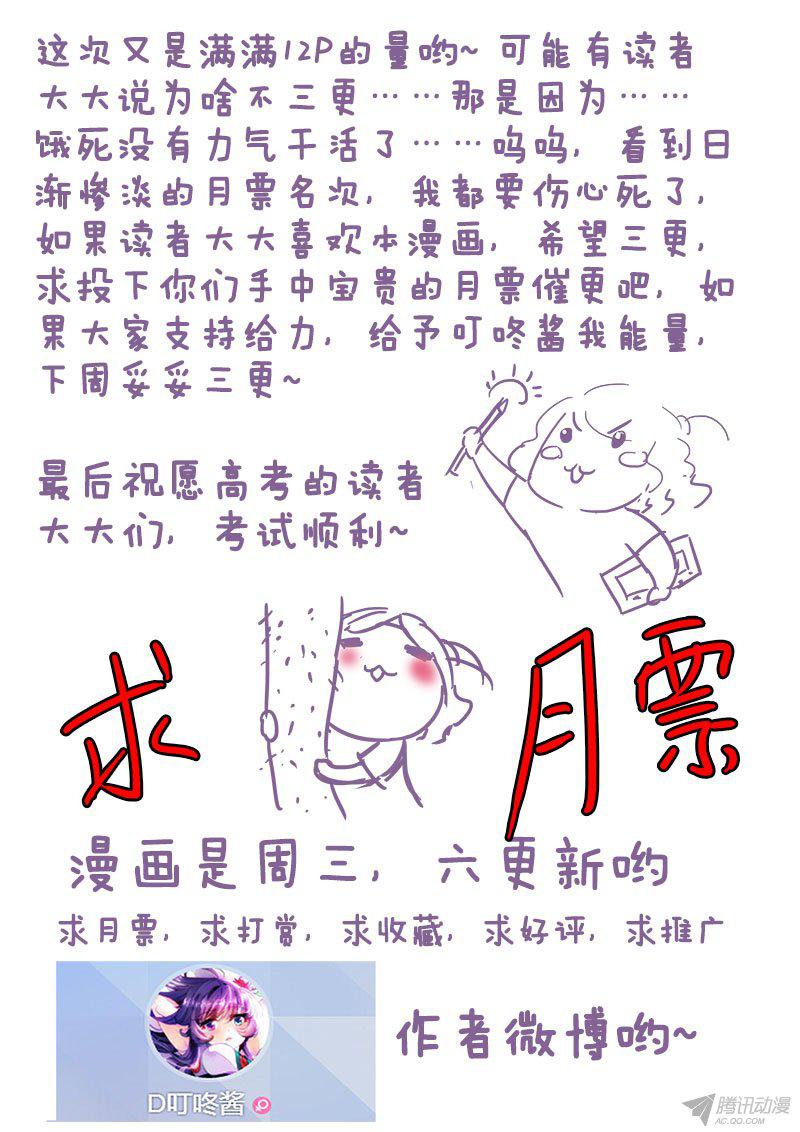 这次又是满满12P的量哟~可能有读者
大大说为啥不三更……那是因为……
饿死没有力气干活了……呜呜，看到日
渐惨淡的月票名次，我都要伤心死了，
如果读者大大喜欢本漫画，希望三更，
求投下你们手中宝贵的月票催更吧，如
果大家支持给力，给予叮咚酱我能量，
下周妥妥三更~
最后祝愿高考的读者
大大们，考试顺利~
求月票
漫画是周三，六更新哟
求月票，求打赏，求收藏，求好评，求推广
作者微博哟~
D叮咚酱
腾讯动漫
AC.QQ.COM